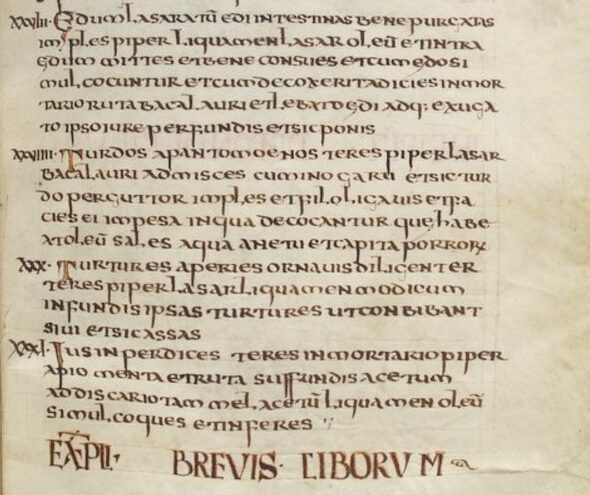 XXVIII· Edum lasaratū edi intestinas bene purgatas
implespiper liquamen lasar oleū et intra
edum mittes et bene consues et cum edo si
mul,cocuntur et cum decoxerit adicies in mor
tario ruta bacal,lauri et lebato edi adq; exuga
to ipso iure perfundis et sic ponis
XXVIIII· Turdos apantomoenos teres piper lasar
bacal,auri admisces cumino garu et sic tur
do per guttior imples et fil,ol,igauis et fa
cies ei impesa in qua decocantur que habe
at oleū sal,es aqua aneti et capita porrorū
XXX· Turtures aperies ornauis diligenter
teres piper lasar liquamen modicum
infundis ipsas turtures ut conbibant
siui et sic assas
XXXI· Ius in perdices teres in mortario piper
apio menta et ruta suffundis acetum
addis cariotam mel,acetū liquamen oleū
simul,coques et inferes
EXPLI· BREVIS· CIBORVM